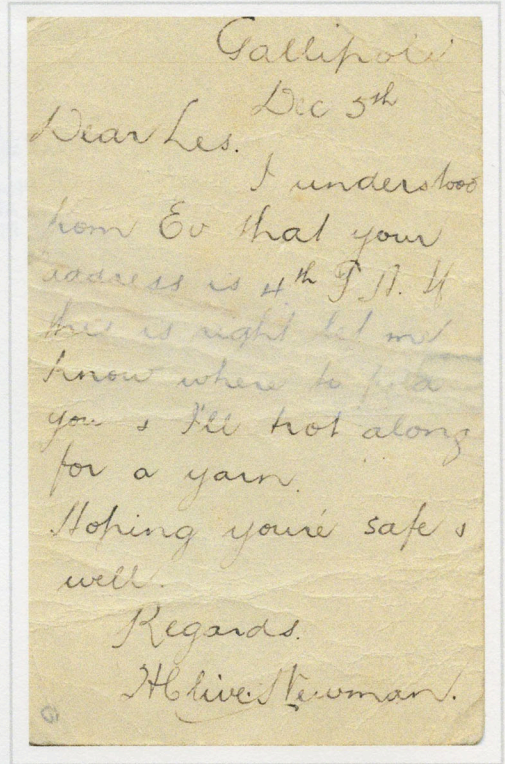 Gallipoli
Dec 5th
Dear Les.
I understood
from Ev that your
address is 4th F.A. If
this is right let me
know where to find
you & I'll trot along
for a yarn.
Hoping you're safe &
well.
Regards.
Clive Newman.